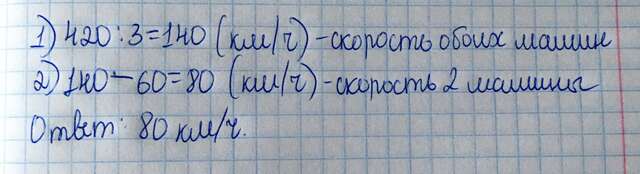 1) 420:3=140 (км/ч) -скорость обоих машин
2) 140-60=80 (км/ч) -скорость 2 машины
Ответ: 80 км/ч.